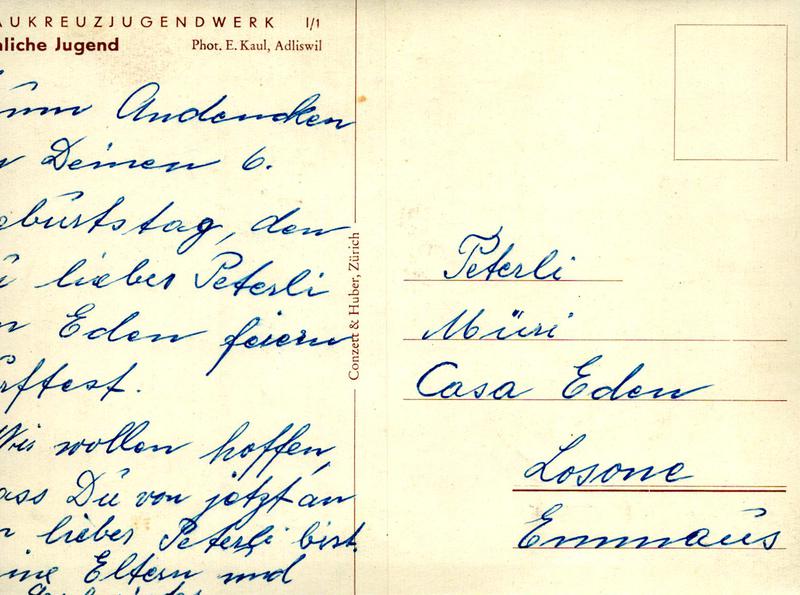 AUKREUZJUGENDWERK I/1
liche Jugend Phot. E. Kaul, Adliswil
um Andencken
n Deinen 6.
eburtstag, den
u lieber Peterli
n Eden feiern
urftest.
Wir wollen hoffen,
ass Du von jetzt an
n lieber Peterli bist.
ine Eltern und
Conzett & Huber, Zürich
Peterli
Müri
Casa Eden
Losone
Emmaus